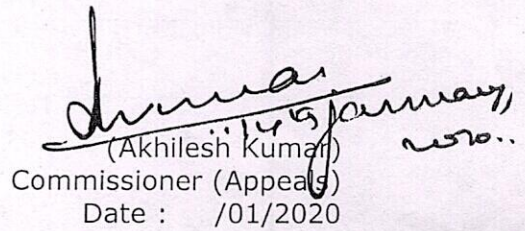 January,
(Akhilesh Kumar)
Commissioner (Appeals)
Date : /01/2020